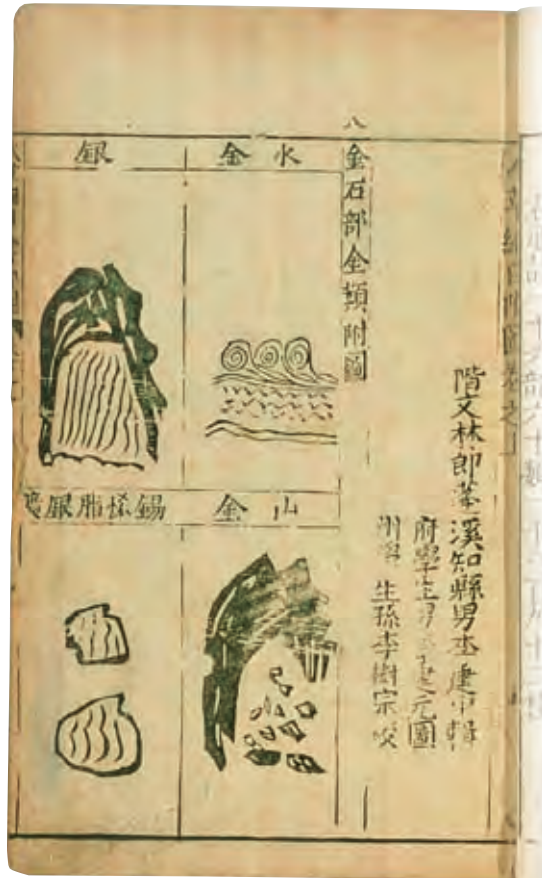 綱目附圖卷之上
階文林郎蓬溪知縣男李建中輯
府學生男李建元圖
州學生孫李樹宗校
金石部金類附圖
水金
山金
銀
錫恡脂銀